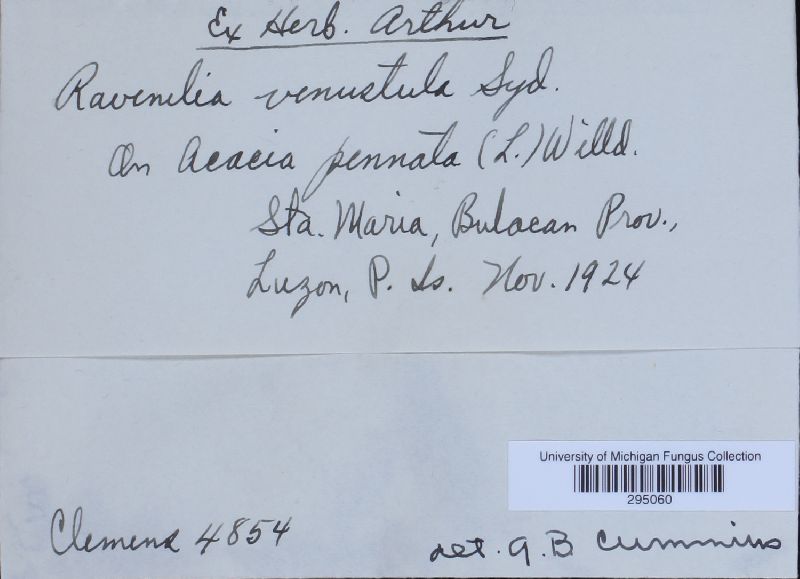 Ex Herb. Arthur
Ravenelia venustula Syd.
On Acacia pennata (L.) Willd.
Sta. Maria, Bulacan Prov.,
Luzon, P. Is. Nov. 1924
University of Michigan Fungus Collection
295060
Clemens 4854
det. G. B Cummins